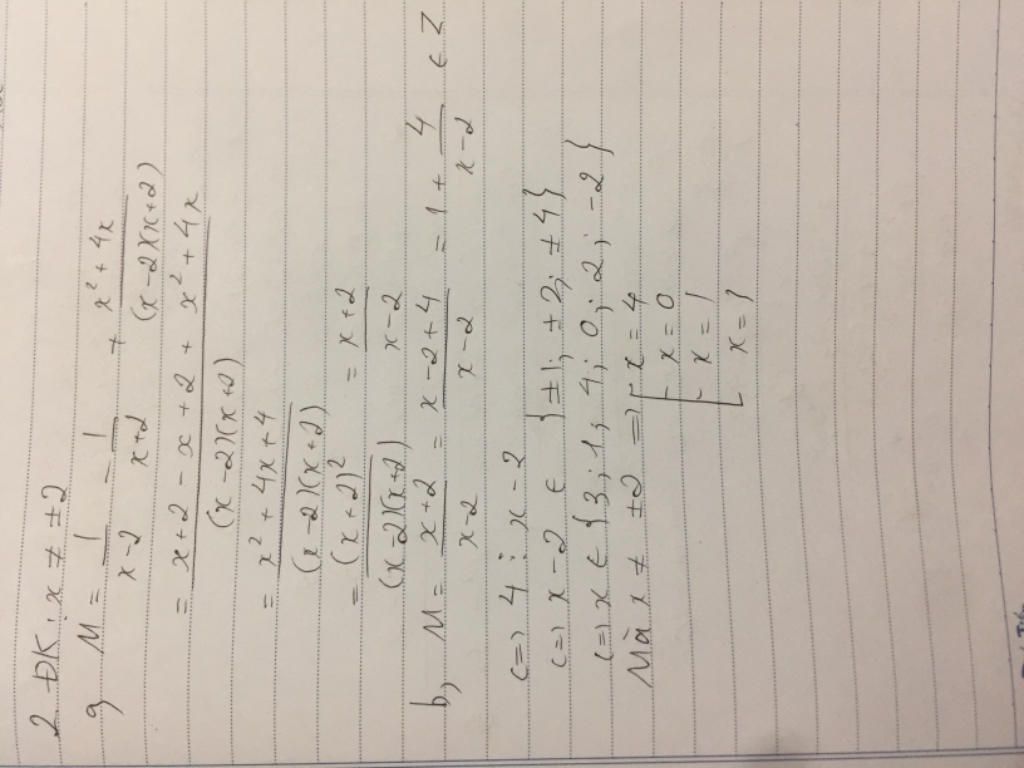 2 ĐK: x ≠ ±2
a, M = 1/(x-2) - 1/(x+2) + (x² + 4x)/((x-2)(x+2))
= (x+2 - x + 2 + x² + 4x)/((x-2)(x+2))
= (x² + 4x + 4)/((x-2)(x+2))
= (x+2)²/((x-2)(x+2)) = (x+2)/(x-2)
b, M = (x+2)/(x-2) = (x-2+4)/(x-2) = 1 + 4/(x-2) ∈ Z
<=> 4 ⋮ x - 2
<=> x - 2 ∈ {±1; ±2; ±4}
<=> x ∈ {3; 1; 4; 0; -2; -2}
Mà x ≠ ±2 => [ x = 4
x = 0
x = 1
x = 3